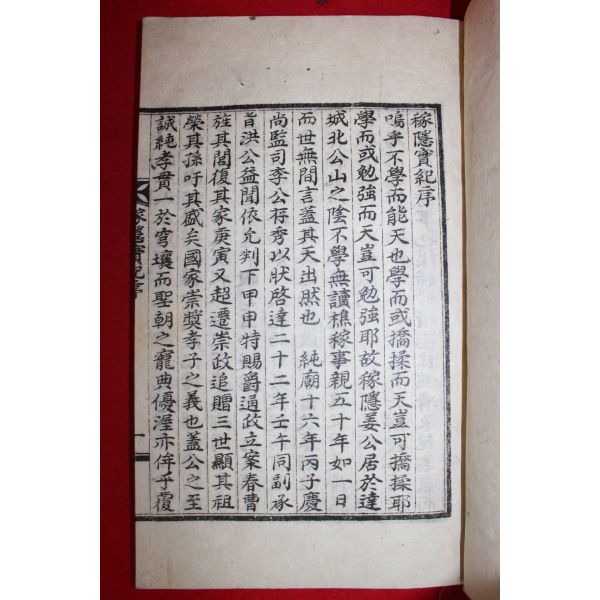 稼隱實紀序
嗚乎不學而能天也學而或撟揉而天豈可撟揉耶
學而或勉強而天豈可勉強耶故稼隱姜公居於達
城北公山之陰不學無讀樵稼事親五十年如一日
而世無間言蓋其天出然也　純廟十六年丙子慶
尚監司李公存秀以狀啓達二十二年壬午同副承
旨洪公益聞依允判下甲申特賜爵通政立案春曹
旌其閭復其家庚寅又超遷崇政追贈三世顯其祖
榮其孫吁其盛矣國家崇獎孝子之義也蓋公之至
誠純孝貫一於穹壤而聖朝之寵典優渥亦侔乎覆
稼隱實紀序
一